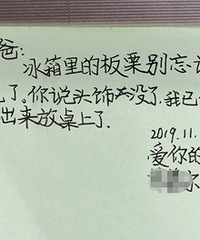 爸:
冰箱里的板栗别忘记
了。你说头饰没了,我已
出来放桌上了.
2019.11.
爱你的